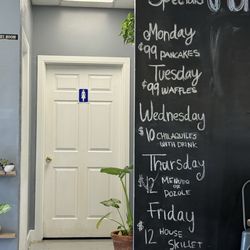 Specials
Monday
$.99 PANCAKES
Tuesday
$.99 WAFFLES
Wednesday
$10 CHILAQUILES
WITH DRINK
Thursday
$12 MENUDO
OR
POZOLE
Friday
$12 HOUSE
SKILLET